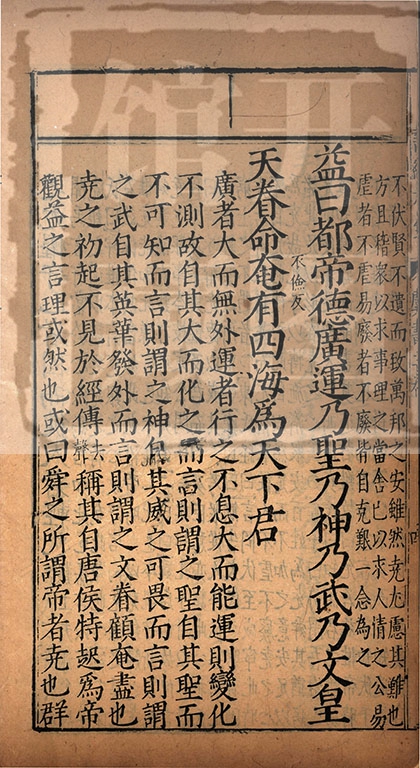 不伏賢不遺而致萬邦之安雖然堯尤慮其難也
方且稽衆以求事理之當舍己以求人情之公易
虐者不虐易廢者不廢皆自克艱一念為之
益曰都帝德廣運乃聖乃神乃武乃文皇
天眷命奄有四海爲天下君
儉反
廣者大而無外運者行之不息大而能運則變化
不測故自其大而化之而言則謂之聖自其聖而
不可知而言則謂之神自其威之可畏而言則謂
之武自其英華發外而言則謂之文眷顧奄盡也
堯之初起不見於經傳去聲稱其自唐侯特起爲帝
觀益之言理或然也或曰舜之所謂帝者堯也群